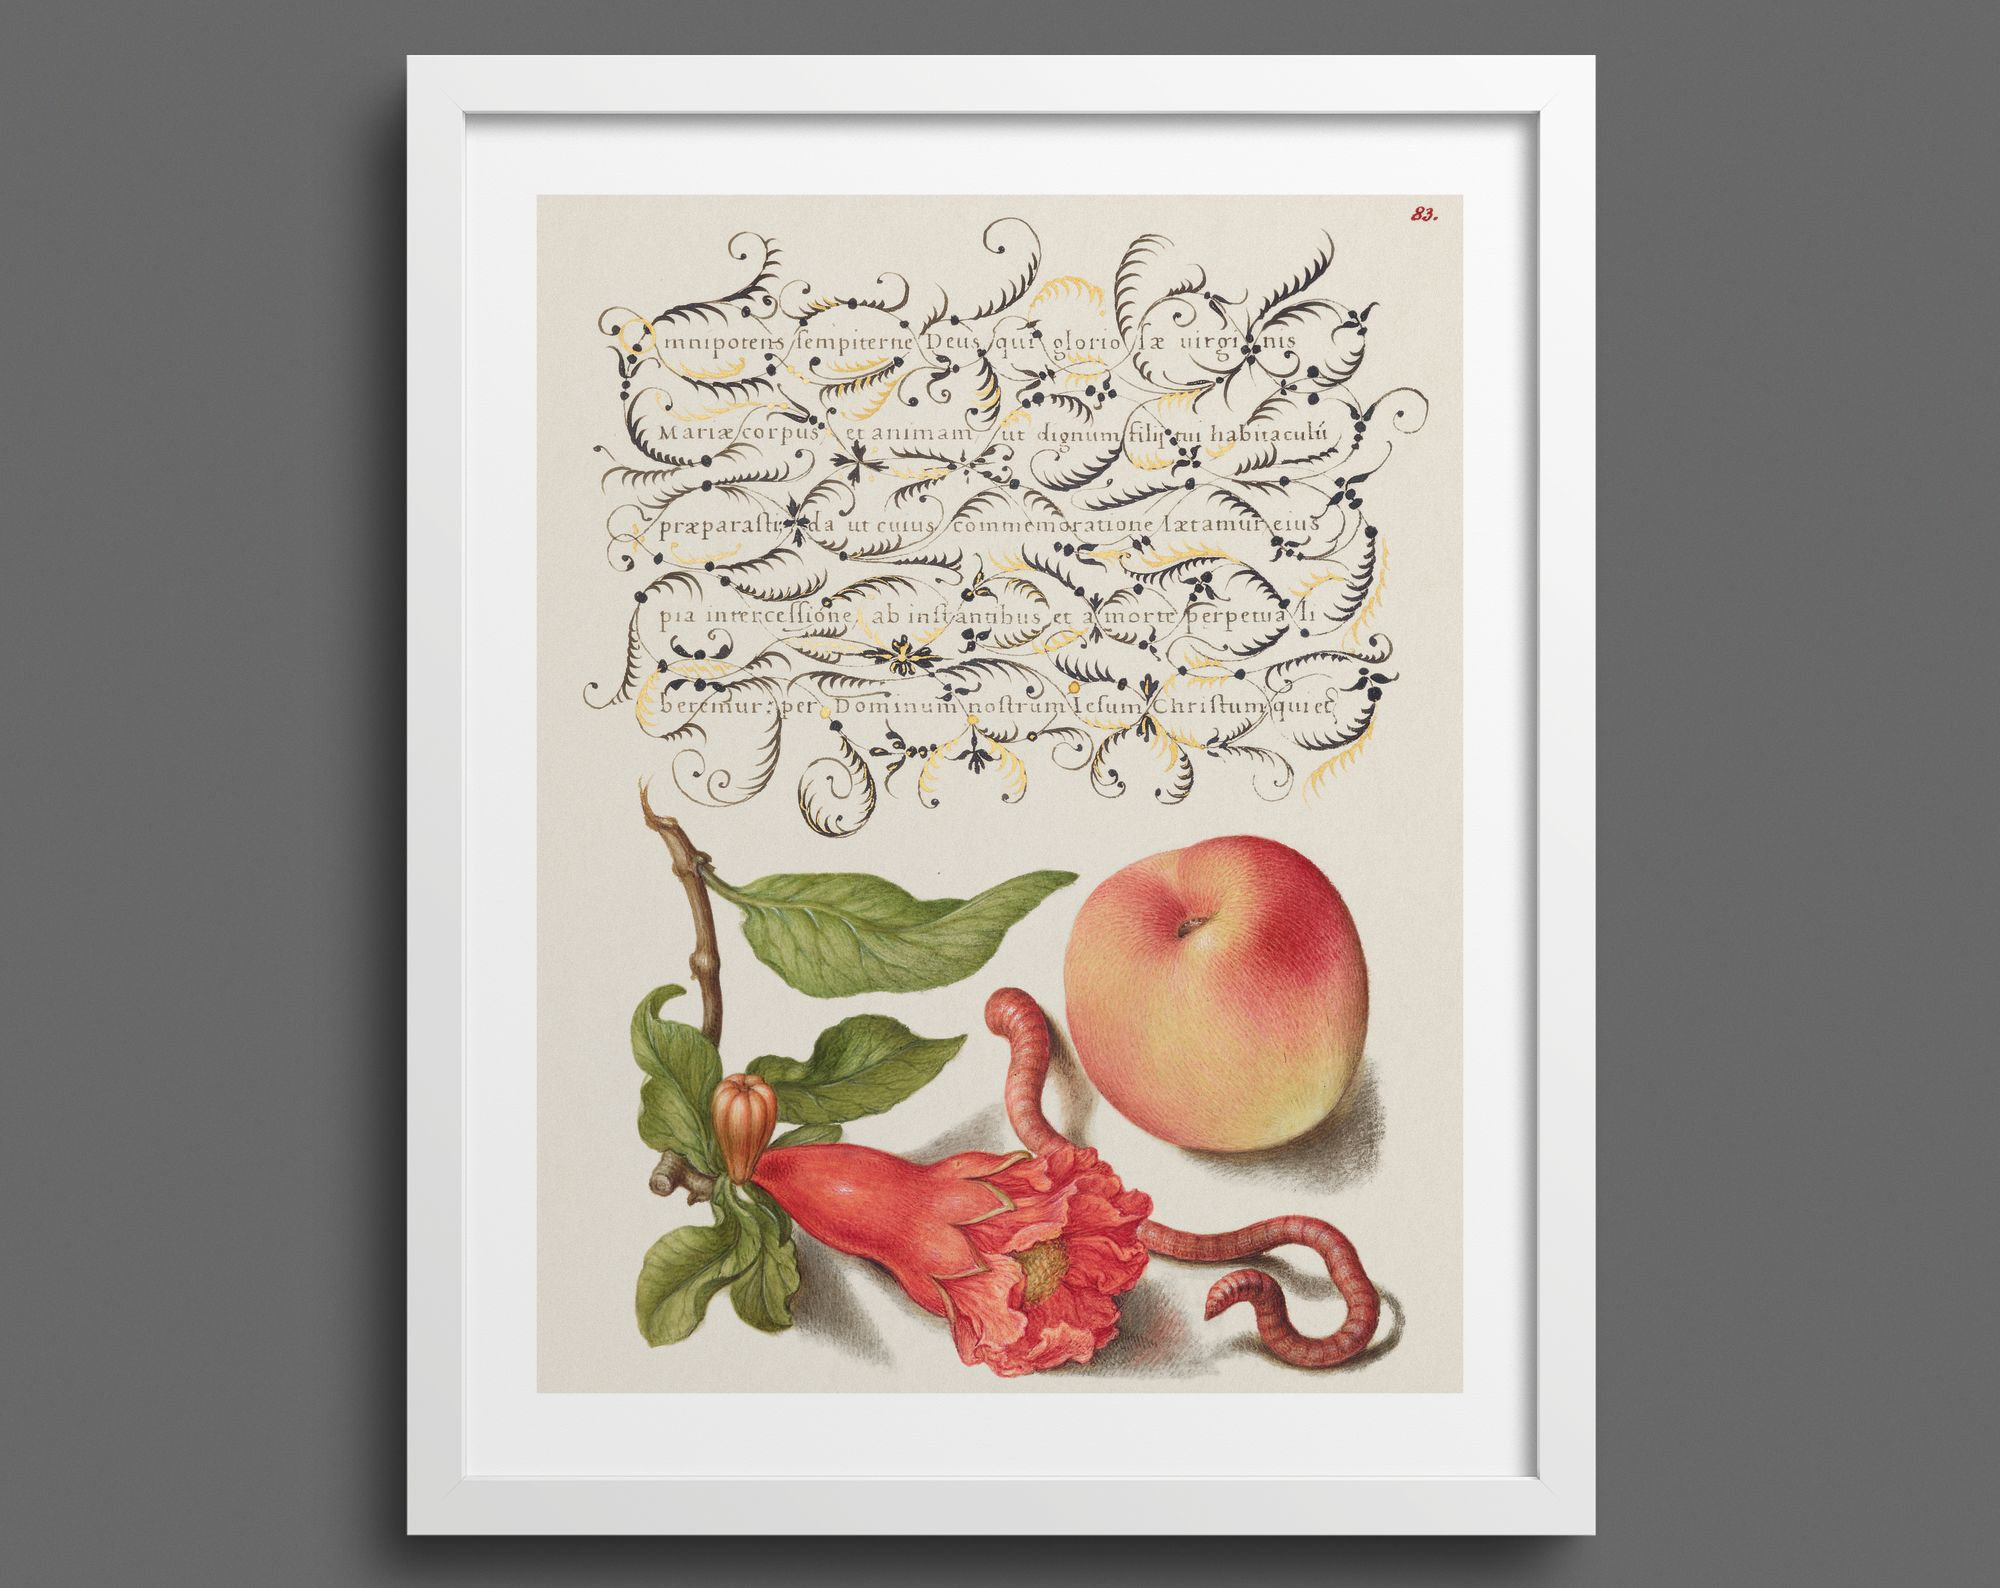 83.
Omnipotens ſempiterne Deus qui glorioſæ virginis
Mariæ corpus et animam ut dignum filii tui habitaculū
præparaſti da ut cuius commemoratione lætamur eius
pia interceſſione ab inſtantibus et a morte perpetua li
beremur: per Dominum noſtrum Ieſum Chriſtum qui et